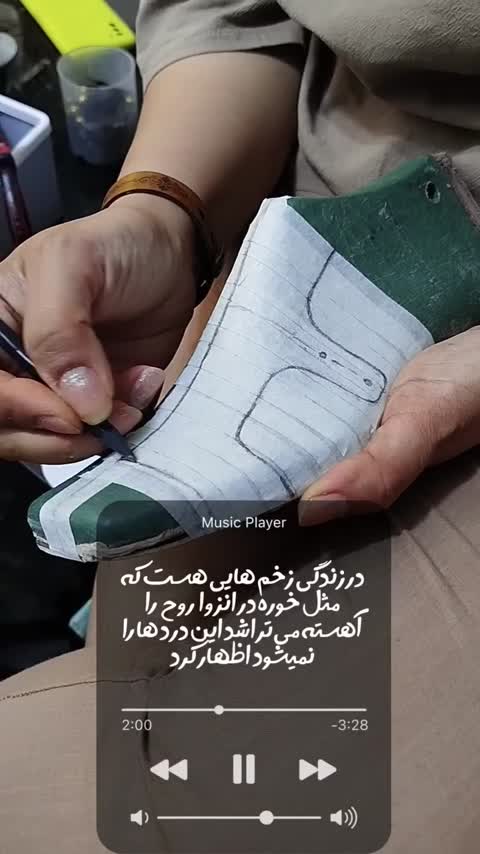 Music Player
در زندگی زخم هایی هست که
مثل خوره در انزوا روح را
آهسته می تراشد این دردها را
نمیشود اظهار کرد
2:00
-3:28